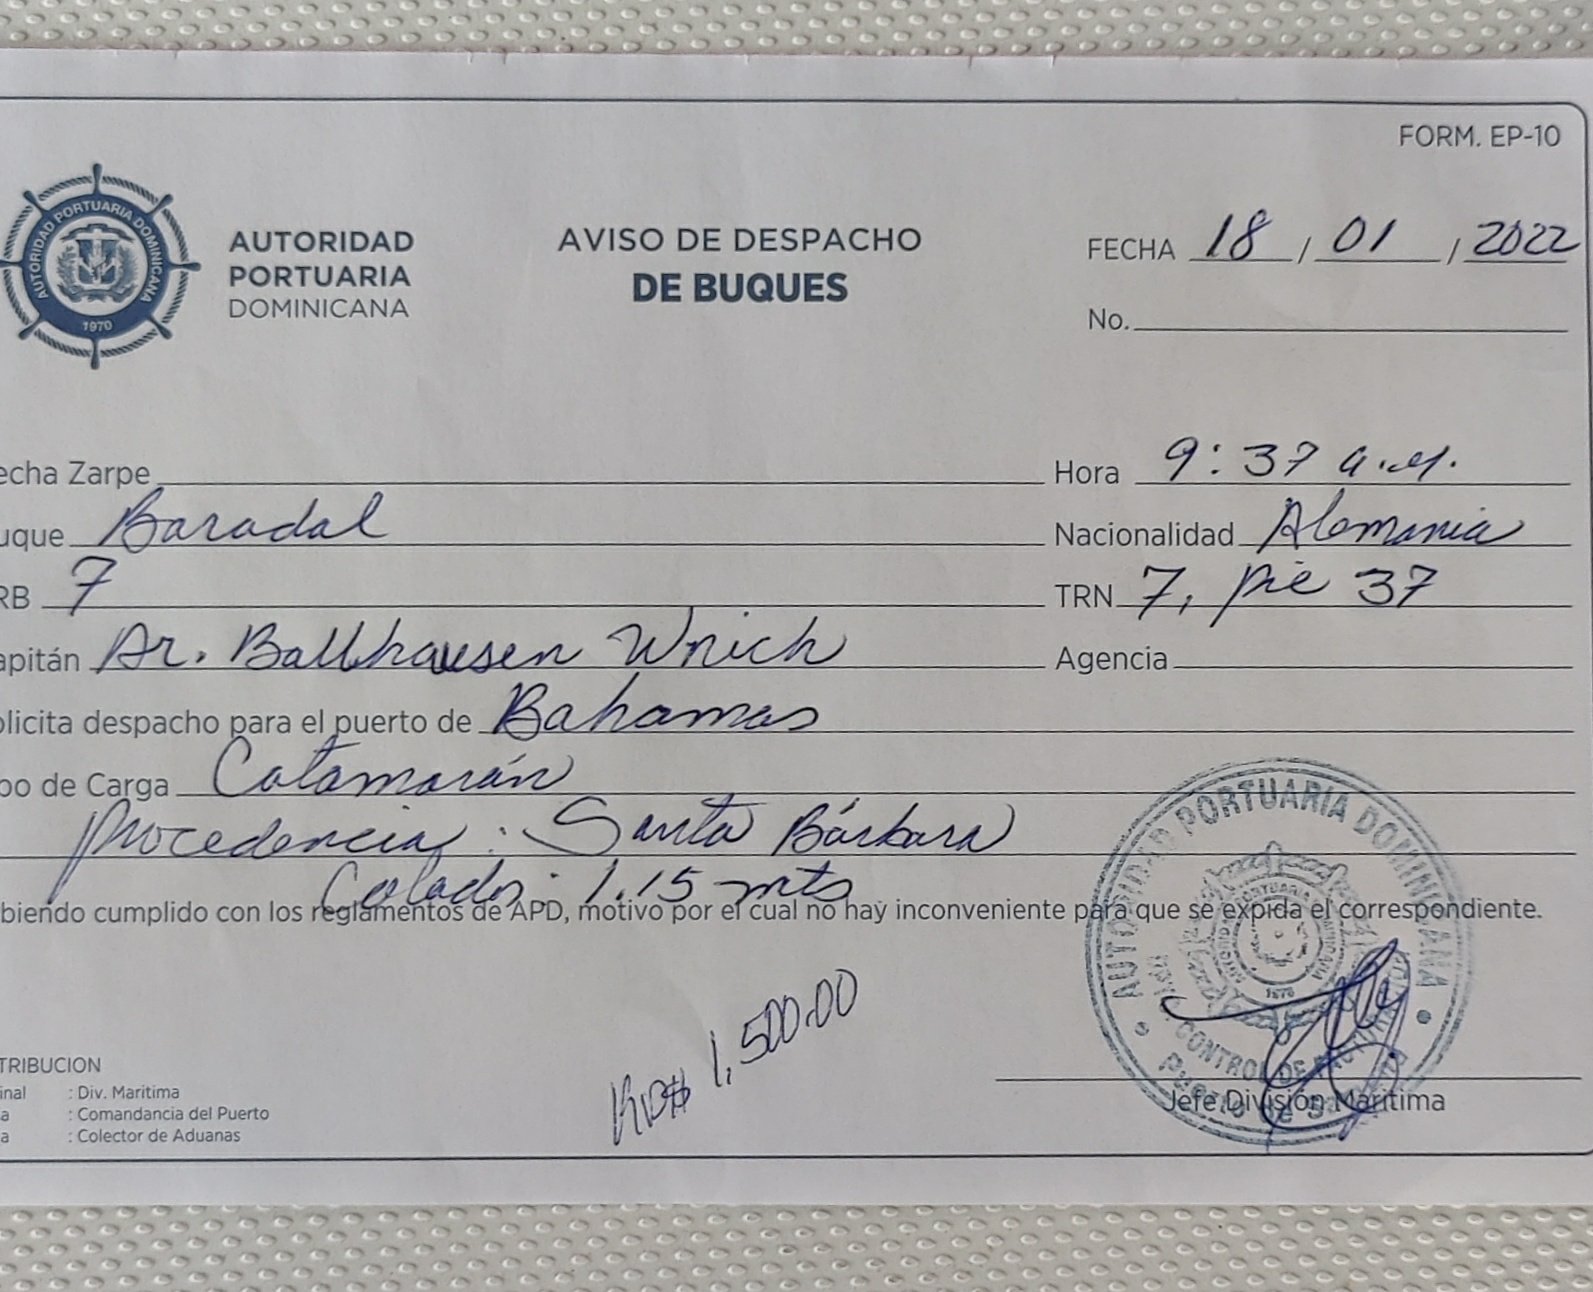 FORM. EP-10
AUTORIDAD PORTUARIA DOMINICANA
1970
AUTORIDAD
PORTUARIA
DOMINICANA
AVISO DE DESPACHO
DE BUQUES
FECHA 18 / 01 / 2022
No.
echa Zarpe
Hora 9:37 a.m.
uque Baradal
Nacionalidad Alemania
RB 7
TRN 7, pie 37
apitán Dr. Ballhausen Wnich
Agencia
olicita despacho para el puerto de Bahamas
po de Carga Catamarán
Procedencia: Santa Bárbara
Calado: 1.15 mts
biendo cumplido con los reglamentos de APD, motivo por el cual no hay inconveniente para que se expida el correspondiente.
RD$ 1,500.00
AUTORIDAD PORTUARIA DOMINICANA
1970
CONTROL DE
Puerto de
Jefe División Marítima
TRIBUCION
inal : Div. Maritima
a : Comandancia del Puerto
a : Colector de Aduanas